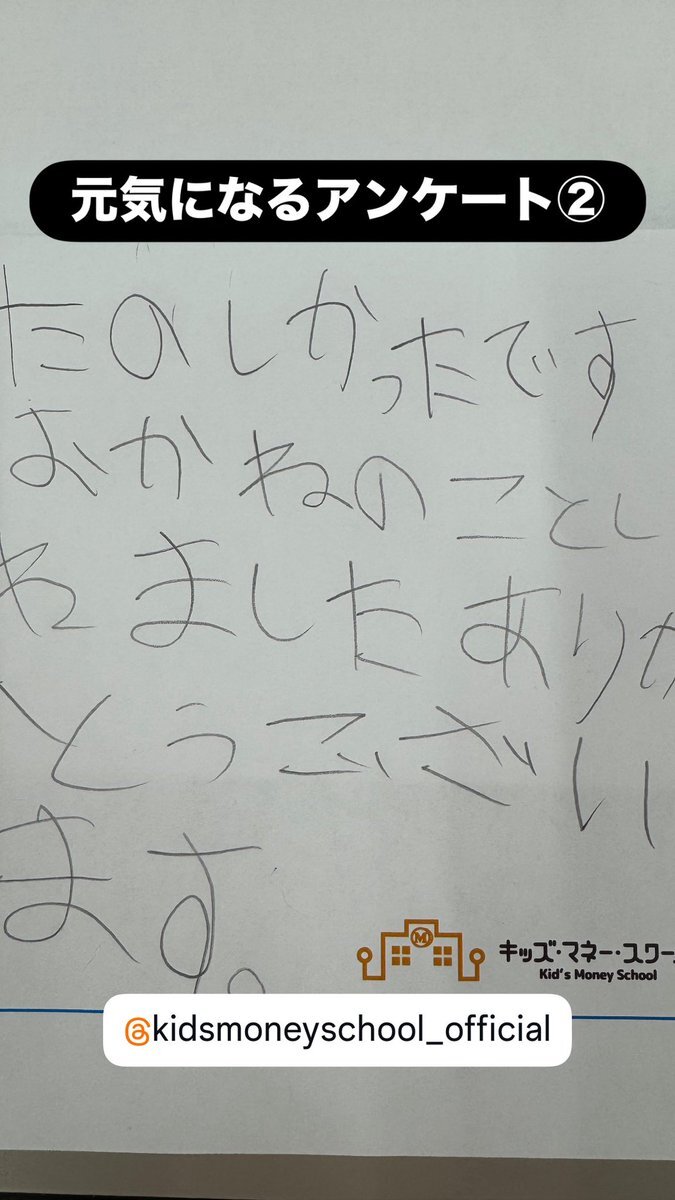 元気になるアンケート②
たのしかったです
おかねのことし
れましたありが
とうござい
ます。
キッズ・マネー・スクール
Kid's Money School
@kidsmoneyschool_official